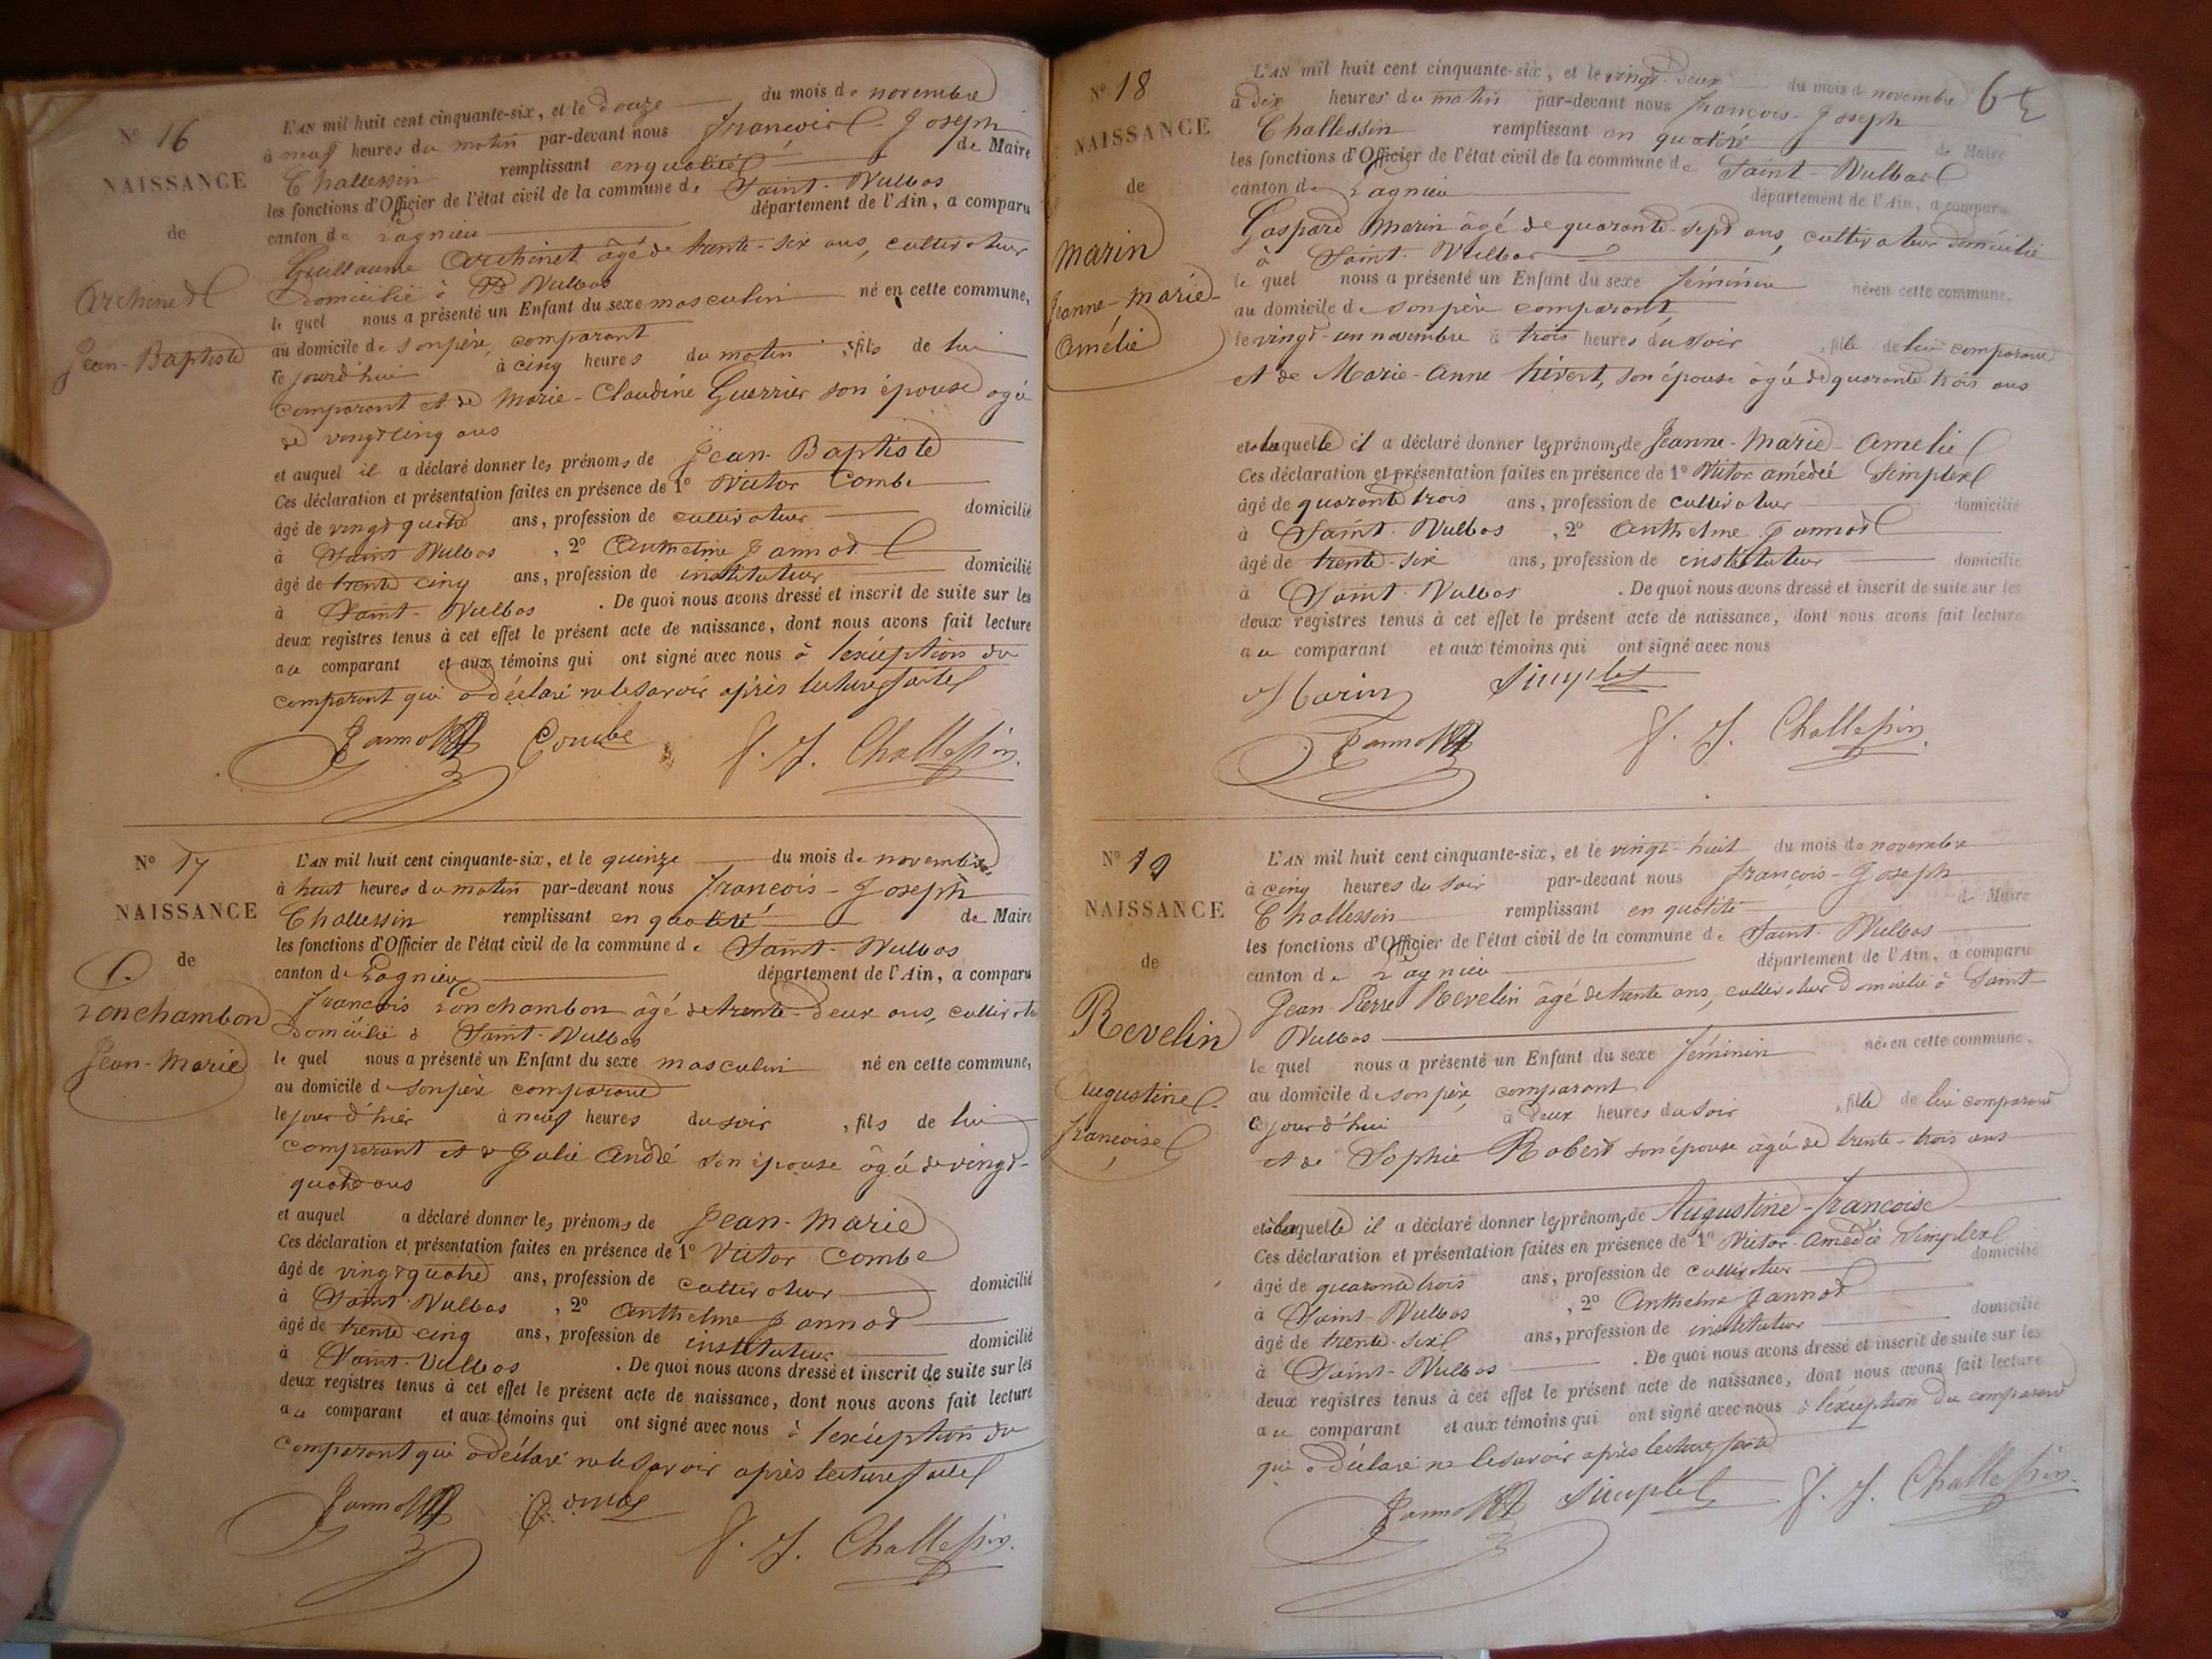 N° 16
NAISSANCE
de
Archinet
Jean-Baptiste
L'AN mil huit cent cinquante-six, et le douze du mois de novembre
à neuf heures du matin par-devant nous François-Joseph
Challessin remplissant en qualité de Maire
les fonctions d'Officier de l'état civil de la commune de Saint-Vulbas
canton de Lagnieu département de l'Ain, a comparu
Guillaume Archinet âgé de trente-six ans, cultivateur
domicilié à St Vulbas
le quel nous a présenté un Enfant du sexe masculin né en cette commune,
au domicile de son père, comparant
ce jourd'hui à cinq heures du matin, fils de lui
comparant et de Marie-Claudine Guerrier son épouse agée
de vingt cinq ans
et auquel il a déclaré donner les prénoms de Jean-Baptiste
Ces déclaration et présentation faites en présence de 1° Victor Combe
âgé de vingt quatre ans, profession de cultivateur domicilié
à Saint Vulbas, 2° Anthelme Jannod
âgé de trente cinq ans, profession de instituteur domicilié
à Saint-Vulbas. De quoi nous avons dressé et inscrit de suite sur les
deux registres tenus à cet effet le présent acte de naissance, dont nous avons fait lecture
au comparant et aux témoins qui ont signé avec nous à l'exception du
comparant qui a déclaré ne le savoir après lecture faite
Jannod Combe F. J. Challessin
N° 17
NAISSANCE
de
Lonchambon
Jean-Marie
L'AN mil huit cent cinquante-six, et le quinze du mois de novembre
à huit heures du matin par-devant nous François-Joseph
Challessin remplissant en qualité de Maire
les fonctions d'Officier de l'état civil de la commune de Saint-Vulbas
canton de Lagnieu département de l'Ain, a comparu
François Lonchambon âgé de trente-deux ans, cultivate
domicilié à Saint-Vulbas
le quel nous a présenté un Enfant du sexe masculin né en cette commune,
au domicile de son père comparant
le jour d'hier à neuf heures du soir, fils de lui
comparant et de Julie André son épouse âgée de vingt-
quatre ans
et auquel a déclaré donner les prénoms de Jean-Marie
Ces déclaration et présentation faites en présence de 1° Victor Combe
âgé de vingt quatre ans, profession de cultivateur domicilié
à Saint-Vulbas, 2° Anthelme Jannod
âgé de trente cinq ans, profession de instituteur domicilié
à Saint-Vulbas. De quoi nous avons dressé et inscrit de suite sur les
deux registres tenus à cet effet le présent acte de naissance, dont nous avons fait lecture
au comparant et aux témoins qui ont signé avec nous à l'exception du
comparant qui a déclaré ne le savoir après lecture faite
Jannod Combe F. J. Challessin
N° 18
NAISSANCE
de
Marin
Jeanne-Marie-
Amélie
L'AN mil huit cent cinquante-six, et le vingt-deux du mois de novembre
à dix heures du matin par-devant nous François-Joseph
Challessin remplissant en qualité de Maire
les fonctions d'Officier de l'état civil de la commune de Saint-Vulbas
canton de Lagnieu département de l'Ain, a comparu
Gaspard Marin âgé de quarante-sept ans, cultivateur domicilié
à Saint-Vulbas
le quel nous a présenté un Enfant du sexe féminin née en cette commune,
au domicile de son père comparant,
le vingt-un novembre à trois heures du soir, fille de lui comparant
et de Marie-Anne hivert, son épouse âgée de quarante-trois ans
et à laquelle il a déclaré donner les prénoms de Jeanne-Marie-Amelie
Ces déclaration et présentation faites en présence de 1° Victor amédée Simplex
âgé de quarante trois ans, profession de cultivateur domicilié
à Saint-Vulbas, 2° Anthelme Jannod
âgé de trente-six ans, profession de instituteur domicilié
à Saint-Vulbas. De quoi nous avons dressé et inscrit de suite sur les
deux registres tenus à cet effet le présent acte de naissance, dont nous avons fait lecture
au comparant et aux témoins qui ont signé avec nous
Marin Simplex
Jannod F. J. Challessin
N° 19
NAISSANCE
de
Revelin
Augustine
françoise
L'AN mil huit cent cinquante-six, et le vingt-huit du mois de novembre
à cinq heures du soir par-devant nous François-Joseph
Challessin remplissant en qualité de Maire
les fonctions d'Officier de l'état civil de la commune de Saint-Vulbas
canton de Lagnieu département de l'Ain, a comparu
Jean-Pierre Revelin âgé de trente ans, cultivateur domicilié à Saint-
Vulbas
le quel nous a présenté un Enfant du sexe féminin née en cette commune,
au domicile de son père, comparant
ce jourd'hui à deux heures du soir, fille de lui comparant
et de Sophie Robert son épouse agée de trente-trois ans
et à laquelle il a déclaré donner les prénoms de Augustine-françoise
Ces déclaration et présentation faites en présence de 1° Victor-Amédée Simplex
âgé de quarante trois ans, profession de cultivateur domicilié
à Saint-Vulbas, 2° Anthelme Jannod
âgé de trente-six ans, profession de instituteur domicilié
à Saint-Vulbas. De quoi nous avons dressé et inscrit de suite sur les
deux registres tenus à cet effet le présent acte de naissance, dont nous avons fait lecture
au comparant et aux témoins qui ont signé avec nous à l'exception du comparant
qui a déclaré ne le savoir après lecture faite
Jannod Simplex F. J. Challessin